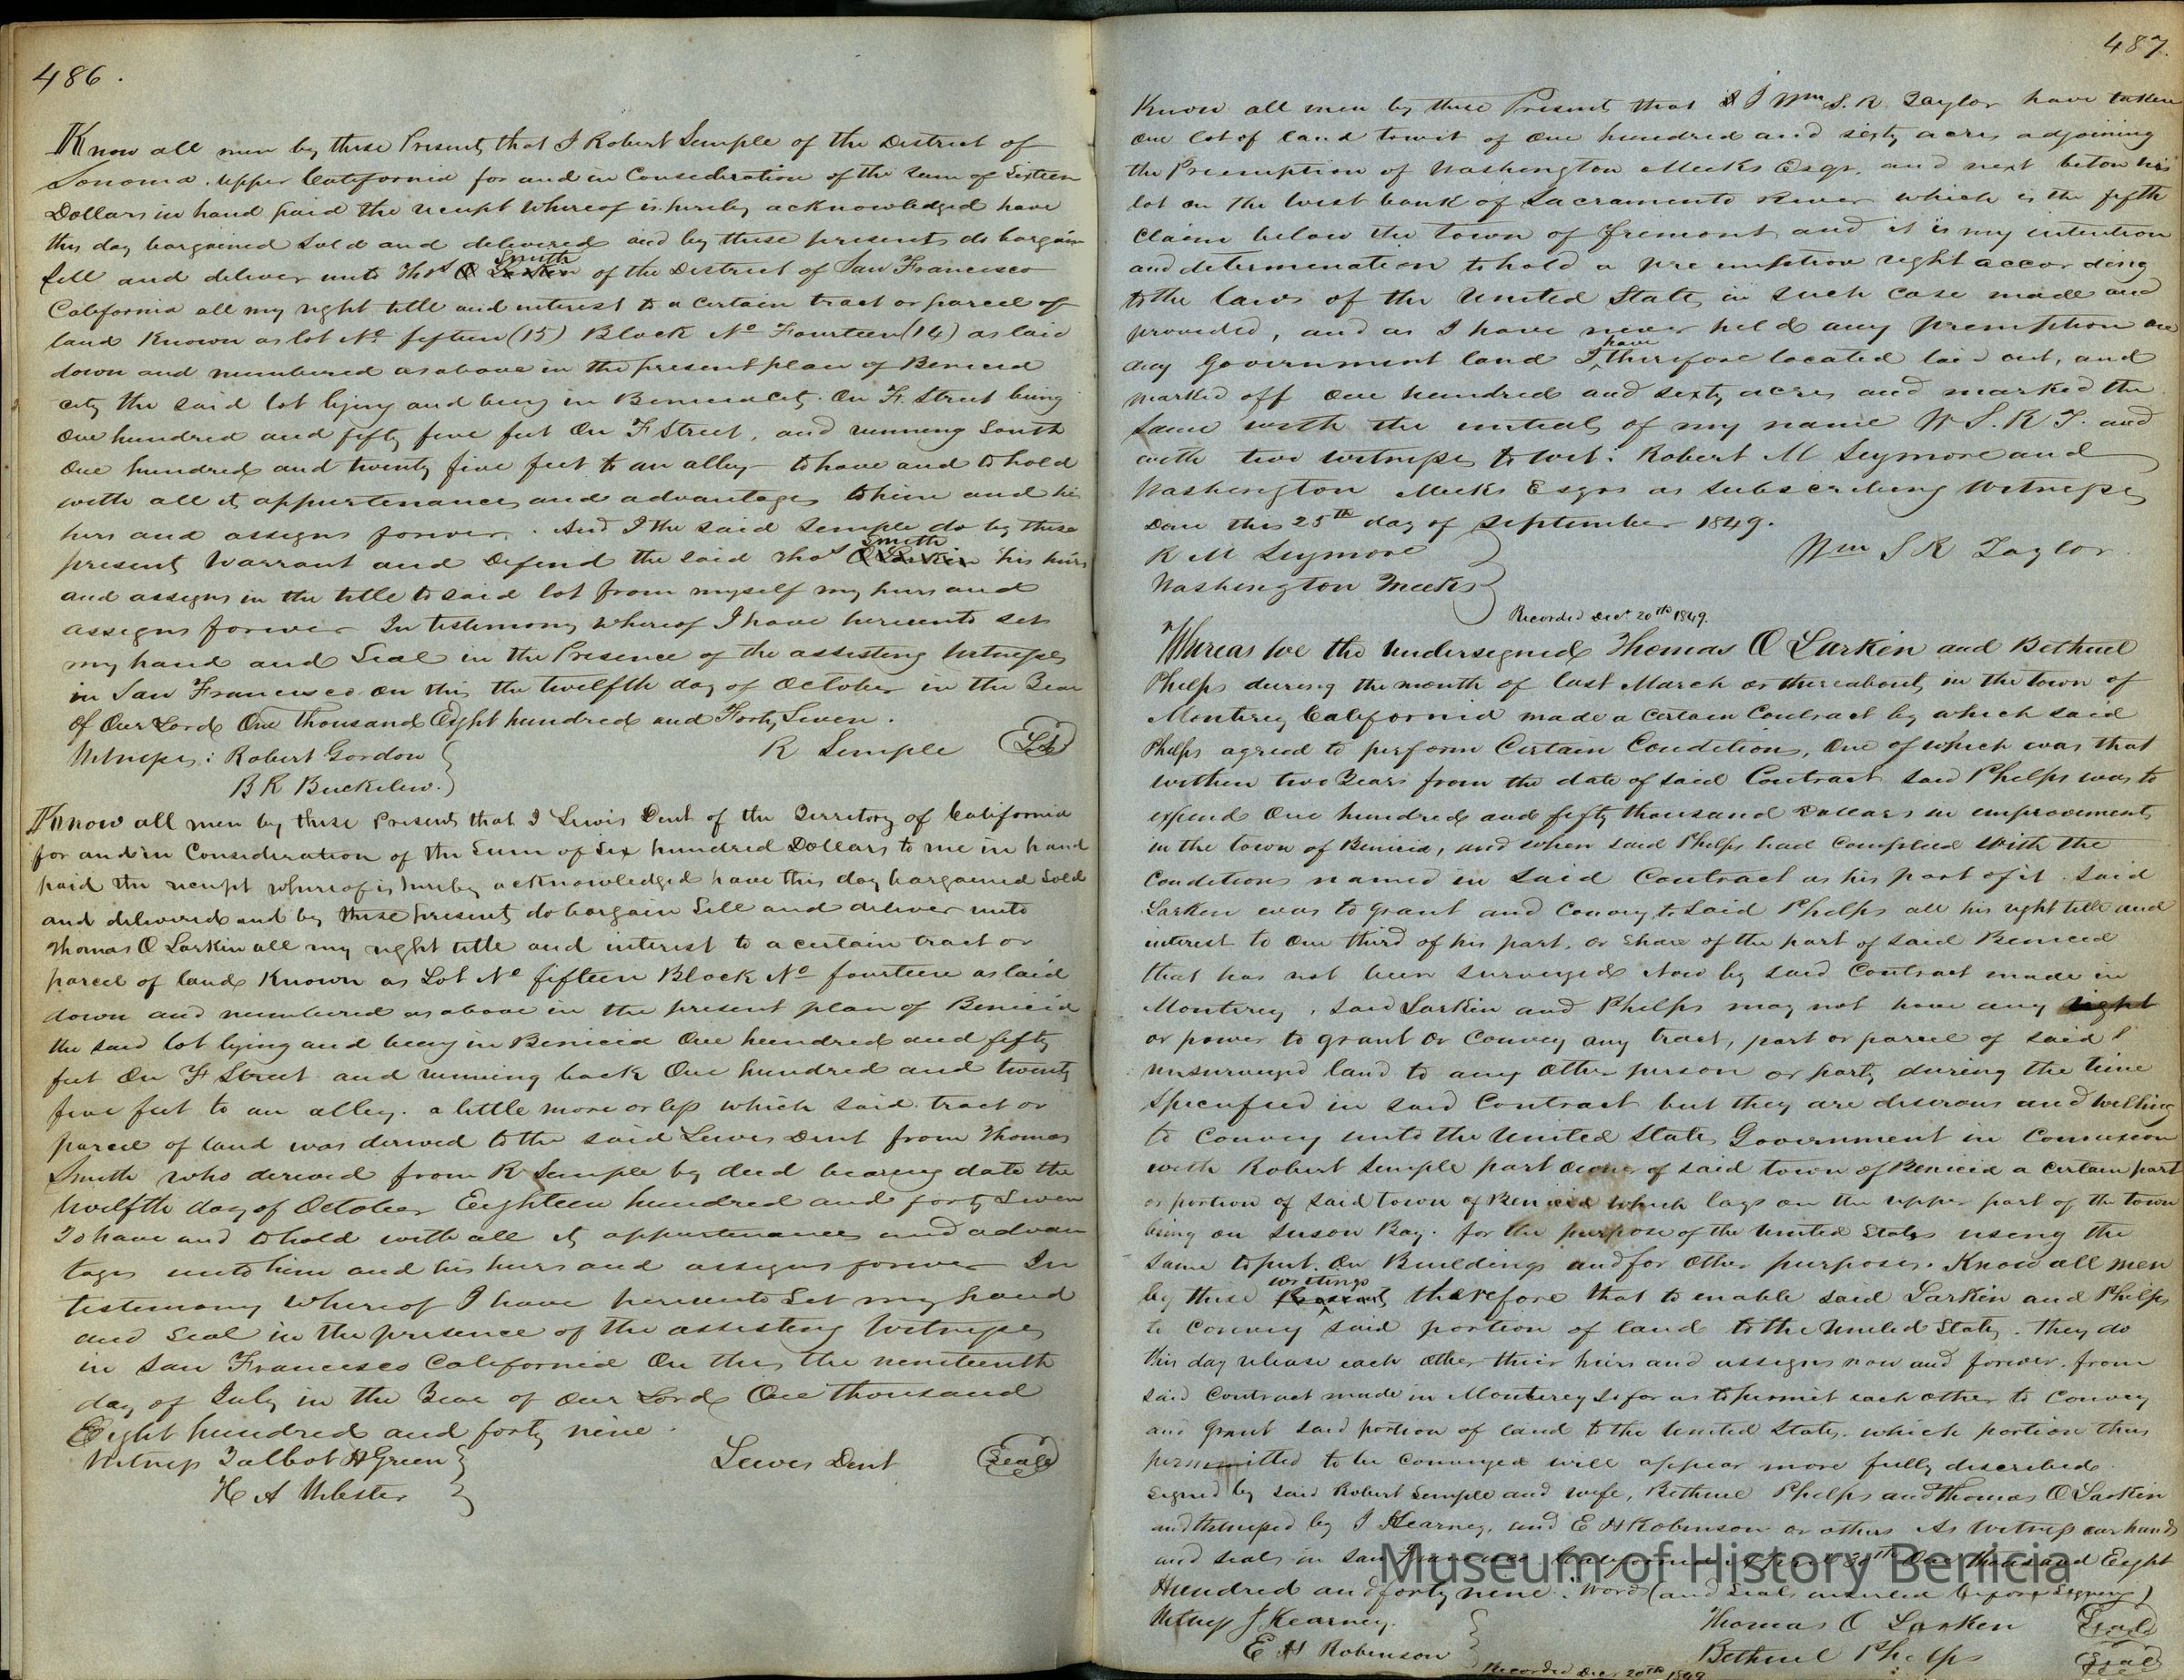 486.
Know all men by these Presents that I Robert Semple of the District of
Sonoma. Upper California for and in Consideration of the Sum of Sixteen
Dollars in hand paid the receipt whereof is hereby acknowledged have
this day bargained Sold and delivered and by these presents do bargain
Smith
Sell and deliver unto Thos O Larkin of the District of San Francisco
California all my right title and interest to a certain tract or parcel of
land Known as lot No fifteen (15) Block No Fourteen (14) as laid
down and numbered as above in the present plan of Benicia
city the said lot lying and being in Benicia City. On F. Street being
One hundred and fifty five feet On F Street, and running South
One hundred and twenty five feet to an alley to have and to hold
with all its appurtenances and advantages to him and his
heirs and assigns forever. And I the said Semple do by these
Smith
presents Warrant and Defend the said Thos O Larkin his heirs
and assigns in the title to said lot from myself my heirs and
assigns forever In testimony whereof I have hereunto set
my hand and Seal in the Presence of the assisting Witnesses
in San Francisco on this the twelfth day of October in the Year
of Our Lord One thousand Eight hundred and Forty Seven.
Witnesses: Robert Gordon
R Semple
B R Buckelew.
Know all men by these Presents that I Lewis Dent of the Territory of California
for and in Consideration of the Sum of Six hundred Dollars to me in hand
paid the receipt whereof is hereby acknowledged have this day bargained Sold
and delivered and by these presents do bargain Sell and deliver unto
Thomas O Larkin all my right title and interest to a certain tract or
parcel of land Known as Lot No fifteen Block No fourteen as laid
down and numbered as above in the present plan of Benicia
the said lot lying and being in Benicia One hundred and fifty
feet On F Street and running back One hundred and twenty
five feet to an alley. a little more or less which said tract or
parcel of land was derived to the said Lewis Dent from Thomas
Smith who derived from R Semple by deed bearing date the
twelfth day of October Eighteen hundred and forty Seven
To have and to hold with all its appurtenances and advan
tages unto him and his heirs and assigns forever In
testimony whereof I have hereunto Set my hand
and Seal in the presence of the assisting Witnesses
in San Francisco California On this the nineteenth
day of July in the Year of Our Lord One thousand
Eight hundred and forty nine.
Witness Talbot H Green
Lewis Dent Seal
H A Webster
487.
Know all men by these Presents that I Wm S. R. Taylor have taken
One lot of land towit of One hundred and sixty acres adjoining
the Preemption of Washington Meeks Esqr. and next below his
lot on the West bank of Sacramento River which is the fifth
Claim below the town of Fremont and it is my intention
and determination to hold a pre emption right according
to the laws of the United States in such case made and
provided, and as I have never held any premption on
have
any Government land I therefore located laid out, and
marked off One hundred and sixty acres and marked the
same with the initials of my name W S. R T. and
with two witnesses to wit: Robert M Seymore and
Washington Meeks Esqrs as subscribing Witnesses
Done this 25th day of September 1849.
R M Seymore
Wm S R Taylor.
Washington Meeks
Recorded Decr 20th 1849.
Whereas We the Undersigned Thomas O Larkin and Bethuel
Phelps during the month of last March or thereabouts in the town of
Monterey California made a certain Contract by which said
Phelps agreed to perform Certain Conditions, One of which was that
within two Years from the date of said Contract said Phelps was to
expend One hundred and fifty thousand Dollars in improvements
in the town of Benicia, and when said Phelps had Complied With the
Conditions named in said Contract as his part of it said
Larkin was to grant and Convey to Said Phelps all his right title and
interest to One third of his part, or Share of the part of said Benicia
that has not been surveyed Now by said Contract made in
Monterey, said Larkin and Phelps may not have any right
or power to grant Or Convey any tract, part or parcel of said
unsurveyed land to any Other person or party during the time
Specified in said Contract but they are desirous and willing
to Convey unto the United States Government in Connexion
with Robert Semple part owner of said town of Benicia a certain part
or portion of said town of Benicia which lays on the upper part of the town
being on Suson Bay. for the purpose of the United States using the
same to put On Buildings and for Other purposes. Know all men
writings
by these Presents therefore that to enable said Larkin and Phelps
to Convey said portion of land to the United States. they do
this day release each Other their heirs and assigns now and forever. from
said Contract made in Monterey So far as to permit each other to Convey
and Grant said portion of land to the United States. which portion thus
permitted to be Conveyed will appear more fully described
signed by said Robert Semple and wife, Bethuel Phelps and Thomas O Larkin
and witnessed by J Kearney, and E H Robinson or others As Witness our hands
and seals in San Francisco California April 30th One thousand Eight
Hundred and forty nine. Word (and Seal inserted before Signing)
Witness J Kearney.
Thomas O Larkin Seal
E H Robinson
Bethuel Phelps Seal
Recorded Decr 20th 1849
Museum of History Benicia